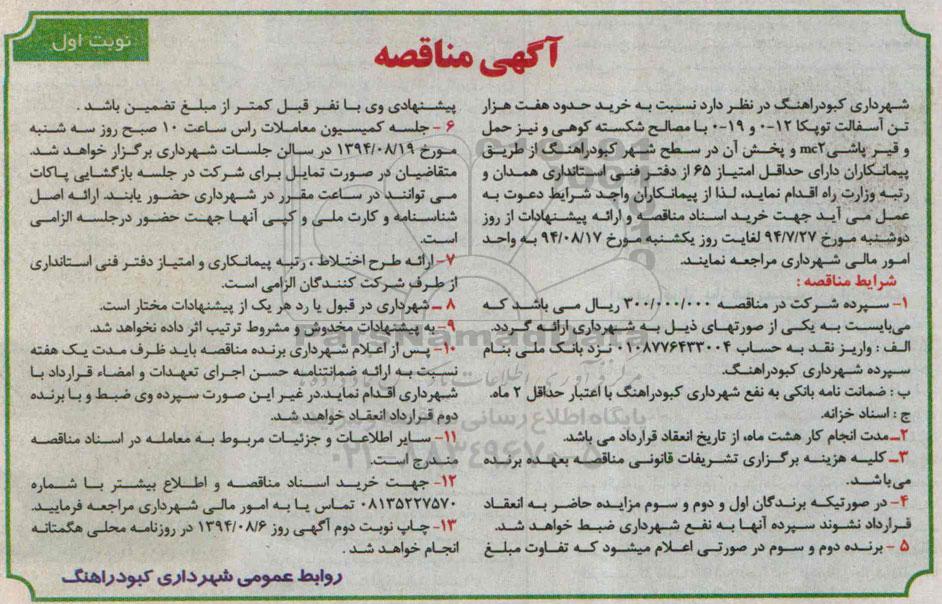 نوبت اول
آگهی مناقصه
شهرداری کبودراهنگ در نظر دارد نسبت به خرید حدود هفت هزار
تن آسفالت توپکا ۱۲-۰ و ۱۹-۰ با مصالح شکسته کوهی و نیز حمل
و قیر پاشی mc۲ و پخش آن در سطح شهر کبودراهنگ از طریق
پیمانکاران دارای حداقل امتیاز ۶۵ از دفتر فنی استانداری همدان و
رتبه وزارت راه اقدام نماید، لذا از پیمانکاران واجد شرایط دعوت به
عمل می آید جهت خرید اسناد مناقصه و ارائه پیشنهادات از روز
دوشنبه مورخ ۹۴/۷/۲۷ لغایت روز یکشنبه مورخ ۹۴/۰۸/۱۷ به واحد
امور مالی شهرداری مراجعه نمایند.
شرایط مناقصه :
۱- سپرده شرکت در مناقصه ۳۰۰/۰۰۰/۰۰۰ ریال می باشد که
می‌بایست به یکی از صورتهای ذیل به شهرداری ارائه گردد.
الف : واریز نقد به حساب ۰۱۰۸۷۷۶۴۳۳۰۰۴ نزد بانک ملی بنام
سپرده شهرداری کبودراهنگ.
ب : ضمانت نامه بانکی به نفع شهرداری کبودراهنگ با اعتبار حداقل ۲ ماه.
ج : اسناد خزانه.
۲ـ مدت انجام کار هشت ماه، از تاریخ انعقاد قرارداد می باشد.
۳ـ کلیه هزینه برگزاری تشریفات قانونی مناقصه بعهده برنده
می‌باشد.
۴- در صورتیکه برندگان اول و دوم و سوم مزایده حاضر به انعقاد
قرارداد نشوند سپرده آنها به نفع شهرداری ضبط خواهد شد.
۵ - برنده دوم و سوم در صورتی اعلام میشود که تفاوت مبلغ
پیشنهادی وی با نفر قبل کمتر از مبلغ تضمین باشد .
۶ - جلسه کمیسیون معاملات راس ساعت ۱۰ صبح روز سه شنبه
مورخ ۱۳۹۴/۰۸/۱۹ در سالن جلسات شهرداری برگزار خواهد شد.
متقاضیان در صورت تمایل برای شرکت در جلسه بازگشایی پاکات
می توانند در ساعت مقرر در شهرداری حضور یابند. ارائه اصل
شناسنامه و کارت ملی و کپی آنها جهت حضور درجلسه الزامی
است.
۷- ارائه طرح اختلاط ، رتبه پیمانکاری و امتیاز دفتر فنی استانداری
از طرف شرکت کنندگان الزامی است.
۸ ـ شهرداری در قبول یا رد هر یک از پیشنهادات مختار است.
۹- به پیشنهادات مخدوش و مشروط ترتیب اثر داده نخواهد شد.
۱۰- پس از اعلام شهرداری برنده مناقصه باید ظرف مدت یک هفته
نسبت به ارائه ضمانتنامه حسن اجرای تعهدات و امضاء قرارداد با
شهرداری اقدام نماید.در غیر این صورت سپرده وی ضبط و با برنده
دوم قرارداد انعقاد خواهد شد.
۱۱- سایر اطلاعات و جزئیات مربوط به معامله در اسناد مناقصه
مندرج است.
۱۲- جهت خرید اسناد مناقصه و اطلاع بیشتر با شماره
۰۸۱۳۵۲۲۷۵۷۰ تماس یا به امور مالی شهرداری مراجعه فرمایید.
۱۳- چاپ نوبت دوم آگهی روز ۱۳۹۴/۰۸/۶ در روزنامه محلی هگمتانه
انجام خواهد شد .
روابط عمومی شهرداری کبودراهنگ
ParsNamadData